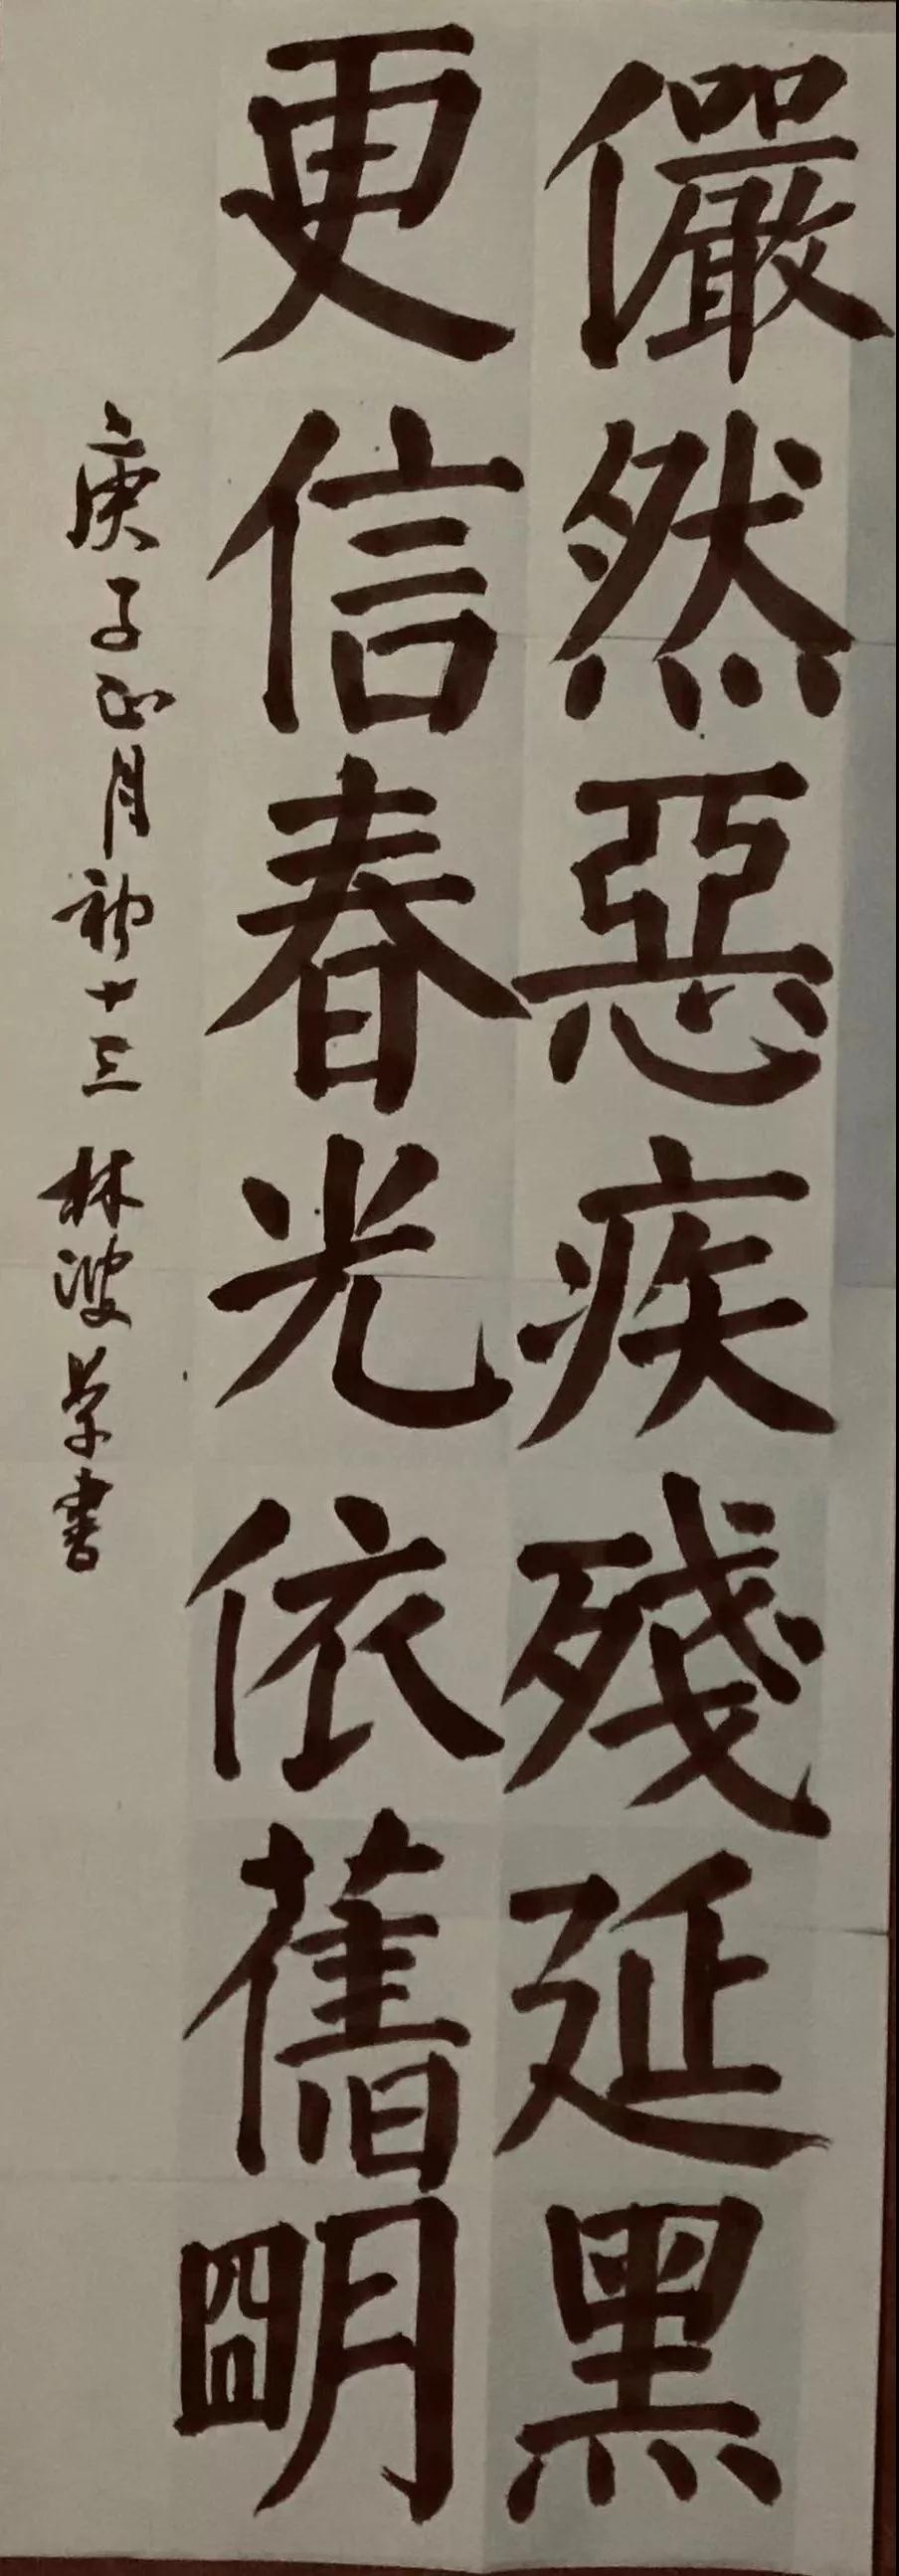 儼然惡疾殘延黑
更信春光依舊朙
庚子正月初十三林波學書